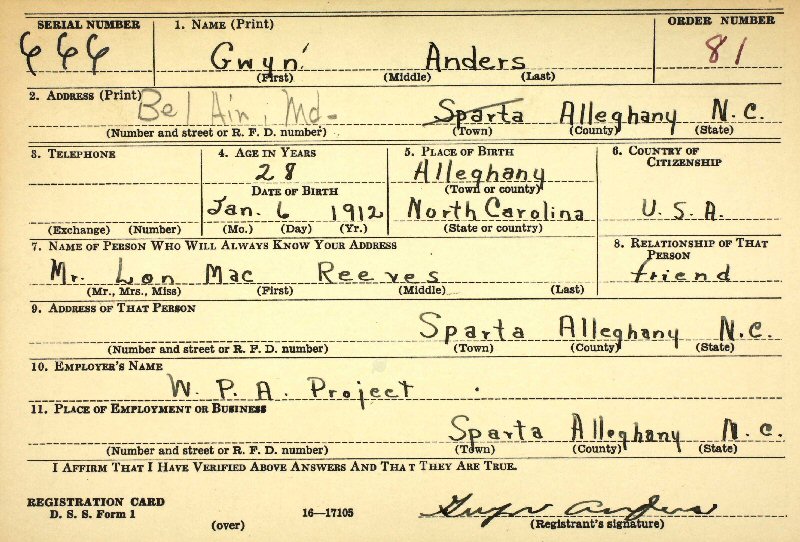 SERIAL NUMBER 1. NAME (Print) ORDER NUMBER
666 Gwyn Anders 81
(First) (Middle) (Last)
2. ADDRESS (Print) Bel Air, Md- Sparta Alleghany N.C.
(Number and street or R. F. D. number) (Town) (County) (State)
3. TELEPHONE 4. AGE IN YEARS 5. PLACE OF BIRTH 6. COUNTRY OF CITIZENSHIP
28 Alleghany
DATE OF BIRTH (Town or county)
Jan. 6 1912 North Carolina U.S.A.
(Exchange) (Number) (Mo.) (Day) (Yr.) (State or country)
7. NAME OF PERSON WHO WILL ALWAYS KNOW YOUR ADDRESS 8. RELATIONSHIP OF THAT PERSON
Mr. Lon Mac Reeves friend
(Mr., Mrs., Miss) (First) (Middle) (Last)
9. ADDRESS OF THAT PERSON
Sparta Alleghany N.C.
(Number and street or R. F. D. number) (Town) (County) (State)
10. EMPLOYER'S NAME
W. P. A. Project
11. PLACE OF EMPLOYMENT OR BUSINESS
Sparta Alleghany N.C.
(Number and street or R. F. D. number) (Town) (County) (State)
I AFFIRM THAT I HAVE VERIFIED ABOVE ANSWERS AND THAT THEY ARE TRUE.
REGISTRATION CARD
D. S. S. Form 1 16—17105 Gwyn Anders
(over) (Registrant's signature)